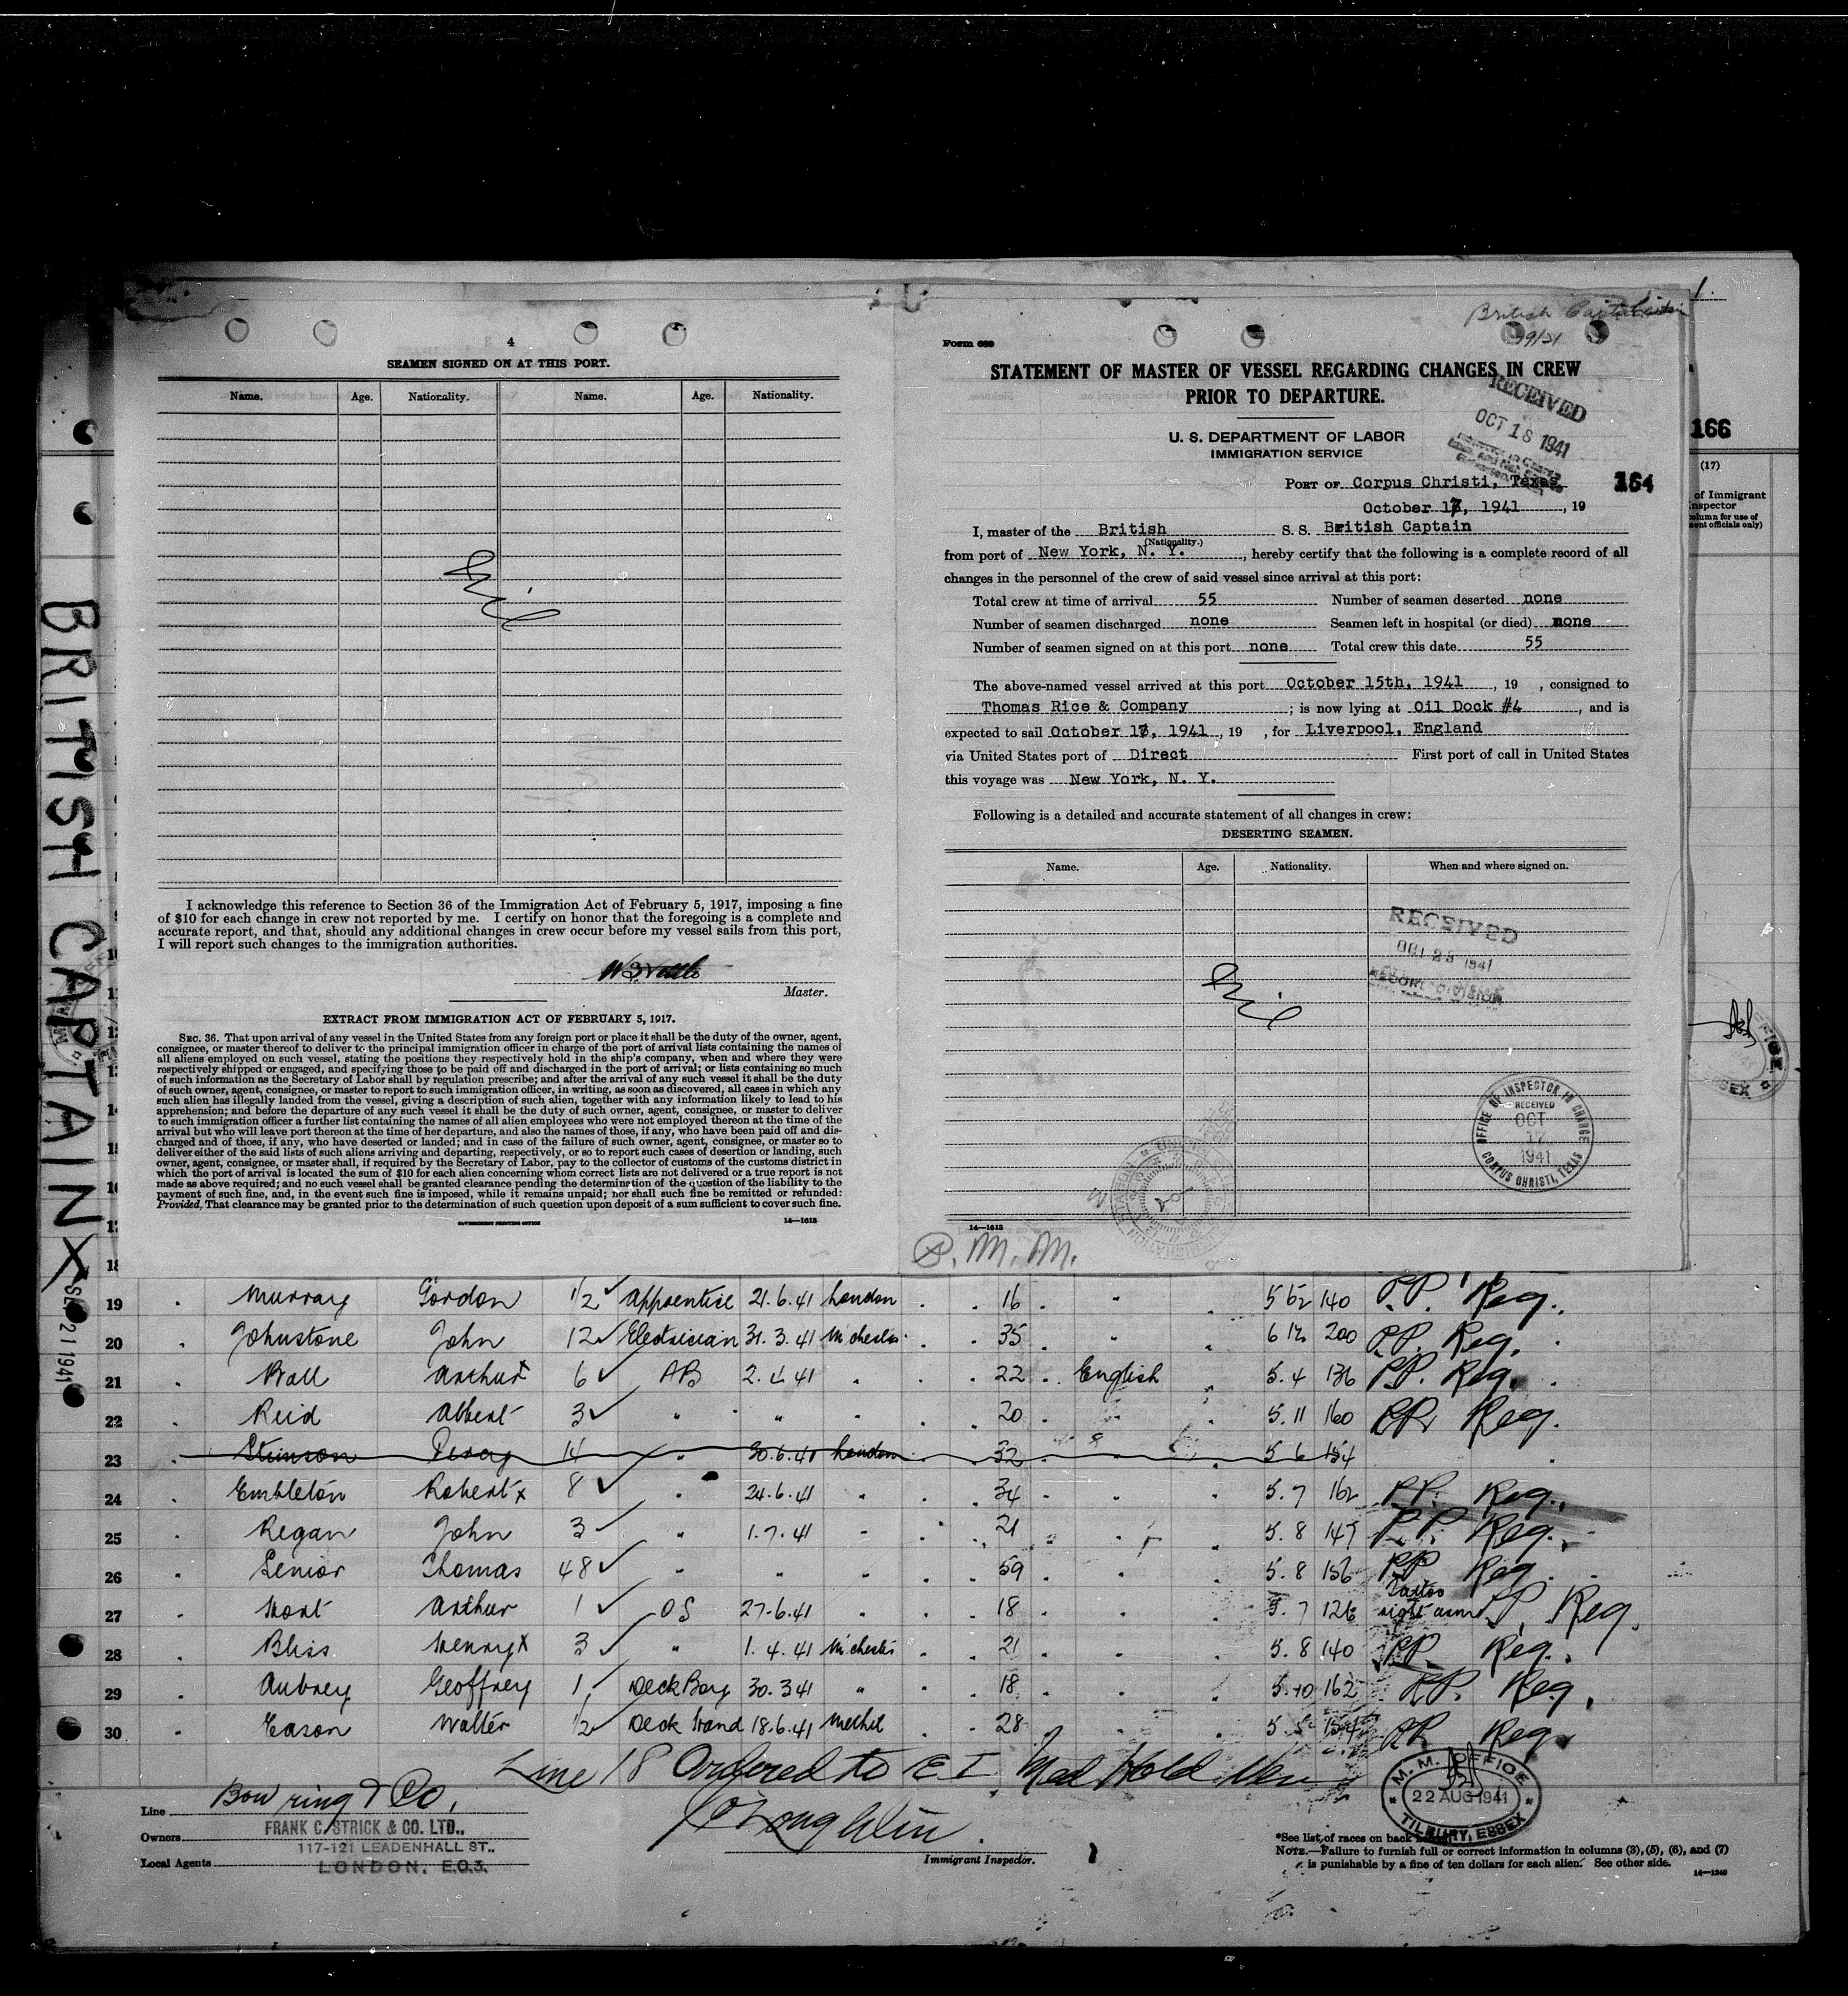 4
SEAMEN SIGNED ON AT THIS PORT.
Name. Age. Nationality. Name. Age. Nationality.
Nil
I acknowledge this reference to Section 36 of the Immigration Act of February 5, 1917, imposing a fine
of $10 for each change in crew not reported by me. I certify on honor that the foregoing is a complete and
accurate report, and that, should any additional changes in crew occur before my vessel sails from this port,
I will report such changes to the immigration authorities.
Master.
EXTRACT FROM IMMIGRATION ACT OF FEBRUARY 5, 1917.
SEC. 36. That upon arrival of any vessel in the United States from any foreign port or place it shall be the duty of the owner, agent,
consignee, or master thereof to deliver to the principal immigration officer in charge of the port of arrival lists containing the names of
all aliens employed on such vessel, stating the positions they respectively hold in the ship's company, when and where they were
respectively shipped or engaged, and specifying those to be paid off and discharged in the port of arrival; or lists containing so much
of such information as the Secretary of Labor shall by regulation prescribe; and after the arrival of any such vessel it shall be the duty
of such owner, agent, consignee, or master to report to such immigration officer, in writing, as soon as discovered, all cases in which any
such alien has illegally landed from the vessel, giving a description of such alien, together with any information likely to lead to his
apprehension; and before the departure of any such vessel it shall be the duty of such owner, agent, consignee, or master to deliver
to such immigration officer a further list containing the names of all alien employees who were not employed thereon at the time of the
arrival but who will leave port thereon at the time of her departure, and also the names of those, if any, who have been paid off and dis-
charged and of those, if any, who have deserted or landed; and in case of the failure of such owner, agent, consignee, or master so to
deliver either of the said lists of such aliens arriving and departing, respectively, or so to report such cases of desertion or landing, such
owner, agent, consignee, or master shall, if required by the Secretary of Labor, pay to the collector of customs of the customs district in
which the port of arrival is located the sum of $10 for each alien concerning whom correct lists are not delivered or a true report is not
made as above required; and no such vessel shall be granted clearance pending the determination of the question of the liability to the
payment of such fine, and, in the event such fine is imposed, while it remains unpaid; nor shall such fine be remitted or refunded:
Provided, That clearance may be granted prior to the determination of such question upon deposit of a sum sufficient to cover such fine.
GOVERNMENT PRINTING OFFICE 14—1613
British Captain
Form 689
STATEMENT OF MASTER OF VESSEL REGARDING CHANGES IN CREW
PRIOR TO DEPARTURE.
RECEIVED
OCT 18 1941
U. S. DEPARTMENT OF LABOR
IMMIGRATION SERVICE
PORT OF Corpus Christi, Texas
164
October 17, 1941, 19
I, master of the British S. S. British Captain
(Nationality.)
from port of New York, N. Y., hereby certify that the following is a complete record of all
changes in the personnel of the crew of said vessel since arrival at this port:
Total crew at time of arrival 55 Number of seamen deserted none
Number of seamen discharged none Seamen left in hospital (or died) none
Number of seamen signed on at this port none Total crew this date 55
The above-named vessel arrived at this port October 15th, 1941, 19 , consigned to
Thomas Rice & Company; is now lying at Oil Dock #4, and is
expected to sail October 17, 1941, 19 , for Liverpool, England
via United States port of Direct First port of call in United States
this voyage was New York, N. Y.
Following is a detailed and accurate statement of all changes in crew:
DESERTING SEAMEN.
Name. Age. Nationality. When and where signed on.
RECEIVED
OCT 25 1941
RECORD DIVISION
Nil
OFFICE OF INSPECTOR IN CHARGE
RECEIVED
OCT
17
1941
CORPUS CHRISTI, TEXAS
14—1613
P. M. M.
166
(17)
of Immigrant
Inspector
column for use of
ment officials only)
BRITISH CAPTAIN X
SEP 21 1941
19 Murray Gordon 1/2 Apprentice 21.6.41 London 16 " 5 6½ 140 P.P. Reg.
20 Johnstone John 12 Electrician 31.3.41 M'chester 35 6 1½ 200 P.P. Reg.
21 Ball Arthur x 6 AB 2.4.41 " 22 English 5.4 136 P.P. Reg.
22 Reid Albert 3 " " " 20 " 5.11 160 P.P. Reg.
23 Stimson Percy 14 " 30.6.41 London 32 5 6 154
24 Embleton Robert x 8 " 24.6.41 " 34 " 5.7 162 P.P. Reg.
25 Regan John 3 " 1.7.41 " 21 " 5.8 147 P.P. Reg.
26 Senior Thomas 48 " " " 59 " 5.8 156 P.P. Reg.
27 Hort Arthur 1 OS 27.6.41 " 18 " 5.7 126 Tattoo right arm P.P. Reg.
28 Bliss Henry x 3 " 1.4.41 M'chester 21 " 5.8 140 P.P. Reg.
29 Aubrey Geoffrey 1 Deck Boy 30.3.41 " 18 " 5.10 162 P.P. Reg.
30 Eason Walter 1/2 Deck Hand 18.6.41 Methil 28 " 5.5 154 P.P. Reg.
Line 18 Ordered to E I Med Hold
Line Bowring & Co,
Owners FRANK C. STRICK & CO. LTD.,
117-121 LEADENHALL ST.,
Local Agents LONDON. E.C.3.
Loughlin
Immigrant Inspector.
M. M. OFFICE
22 AUG 1941
TILBURY, ESSEX
*See list of races on back
NOTE.—Failure to furnish full or correct information in columns (3), (5), (6), and (7)
is punishable by a fine of ten dollars for each alien. See other side.
14—1240